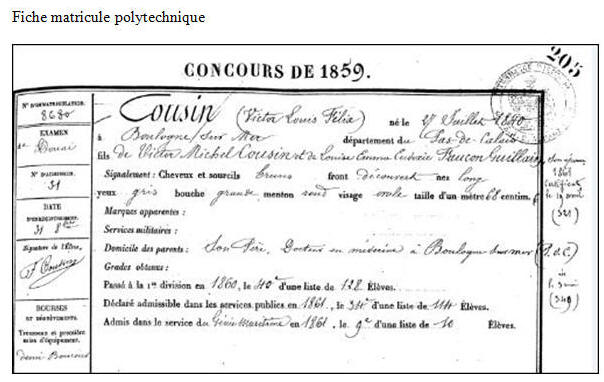 Fiche matricule polytechnique
205
CONCOURS DE 1859.
N° D'IMMATRICULATION.
8680
EXAMEN
Douai
N° D'ADMISSION.
31
DATE
31 8bre
Signature de l'Élève,
F Cousin
BOURSES
ET DÉGRÈVEMENTS.
Trousseau et première
mise d'équipement.
demi Bourse
Cousin (Victor Louis Félix) né le 27 Juillet 1840
à Boulogne sur Mer département du Pas-de-Calais
fils de Victor Michel Cousin et de Louise
Signalement : Cheveux et sourcils bruns front découvert nez long
yeux gris bouche grande menton rond visage ovale taille d'un mètre 68 centim.
Marques apparentes :
Services militaires :
Domicile des parents : Son Père, Docteur en médecine à Boulogne sur mer (P. d. C.)
Grades obtenus :
Passé à la 1re division en 1860, le 40e d'une liste de 128 Élèves.
Déclaré admissible dans les services publics en 1861, le 34e d'une liste de 114 Élèves.
Admis dans le service du Génie Maritime en 1861, le 9e d'une liste de 10 Élèves.
1861
(521)
(549)